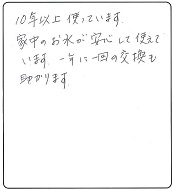 10年以上使っています.
家中のお水が安心して使えて
います. 一年に一回の交換も
助かります.